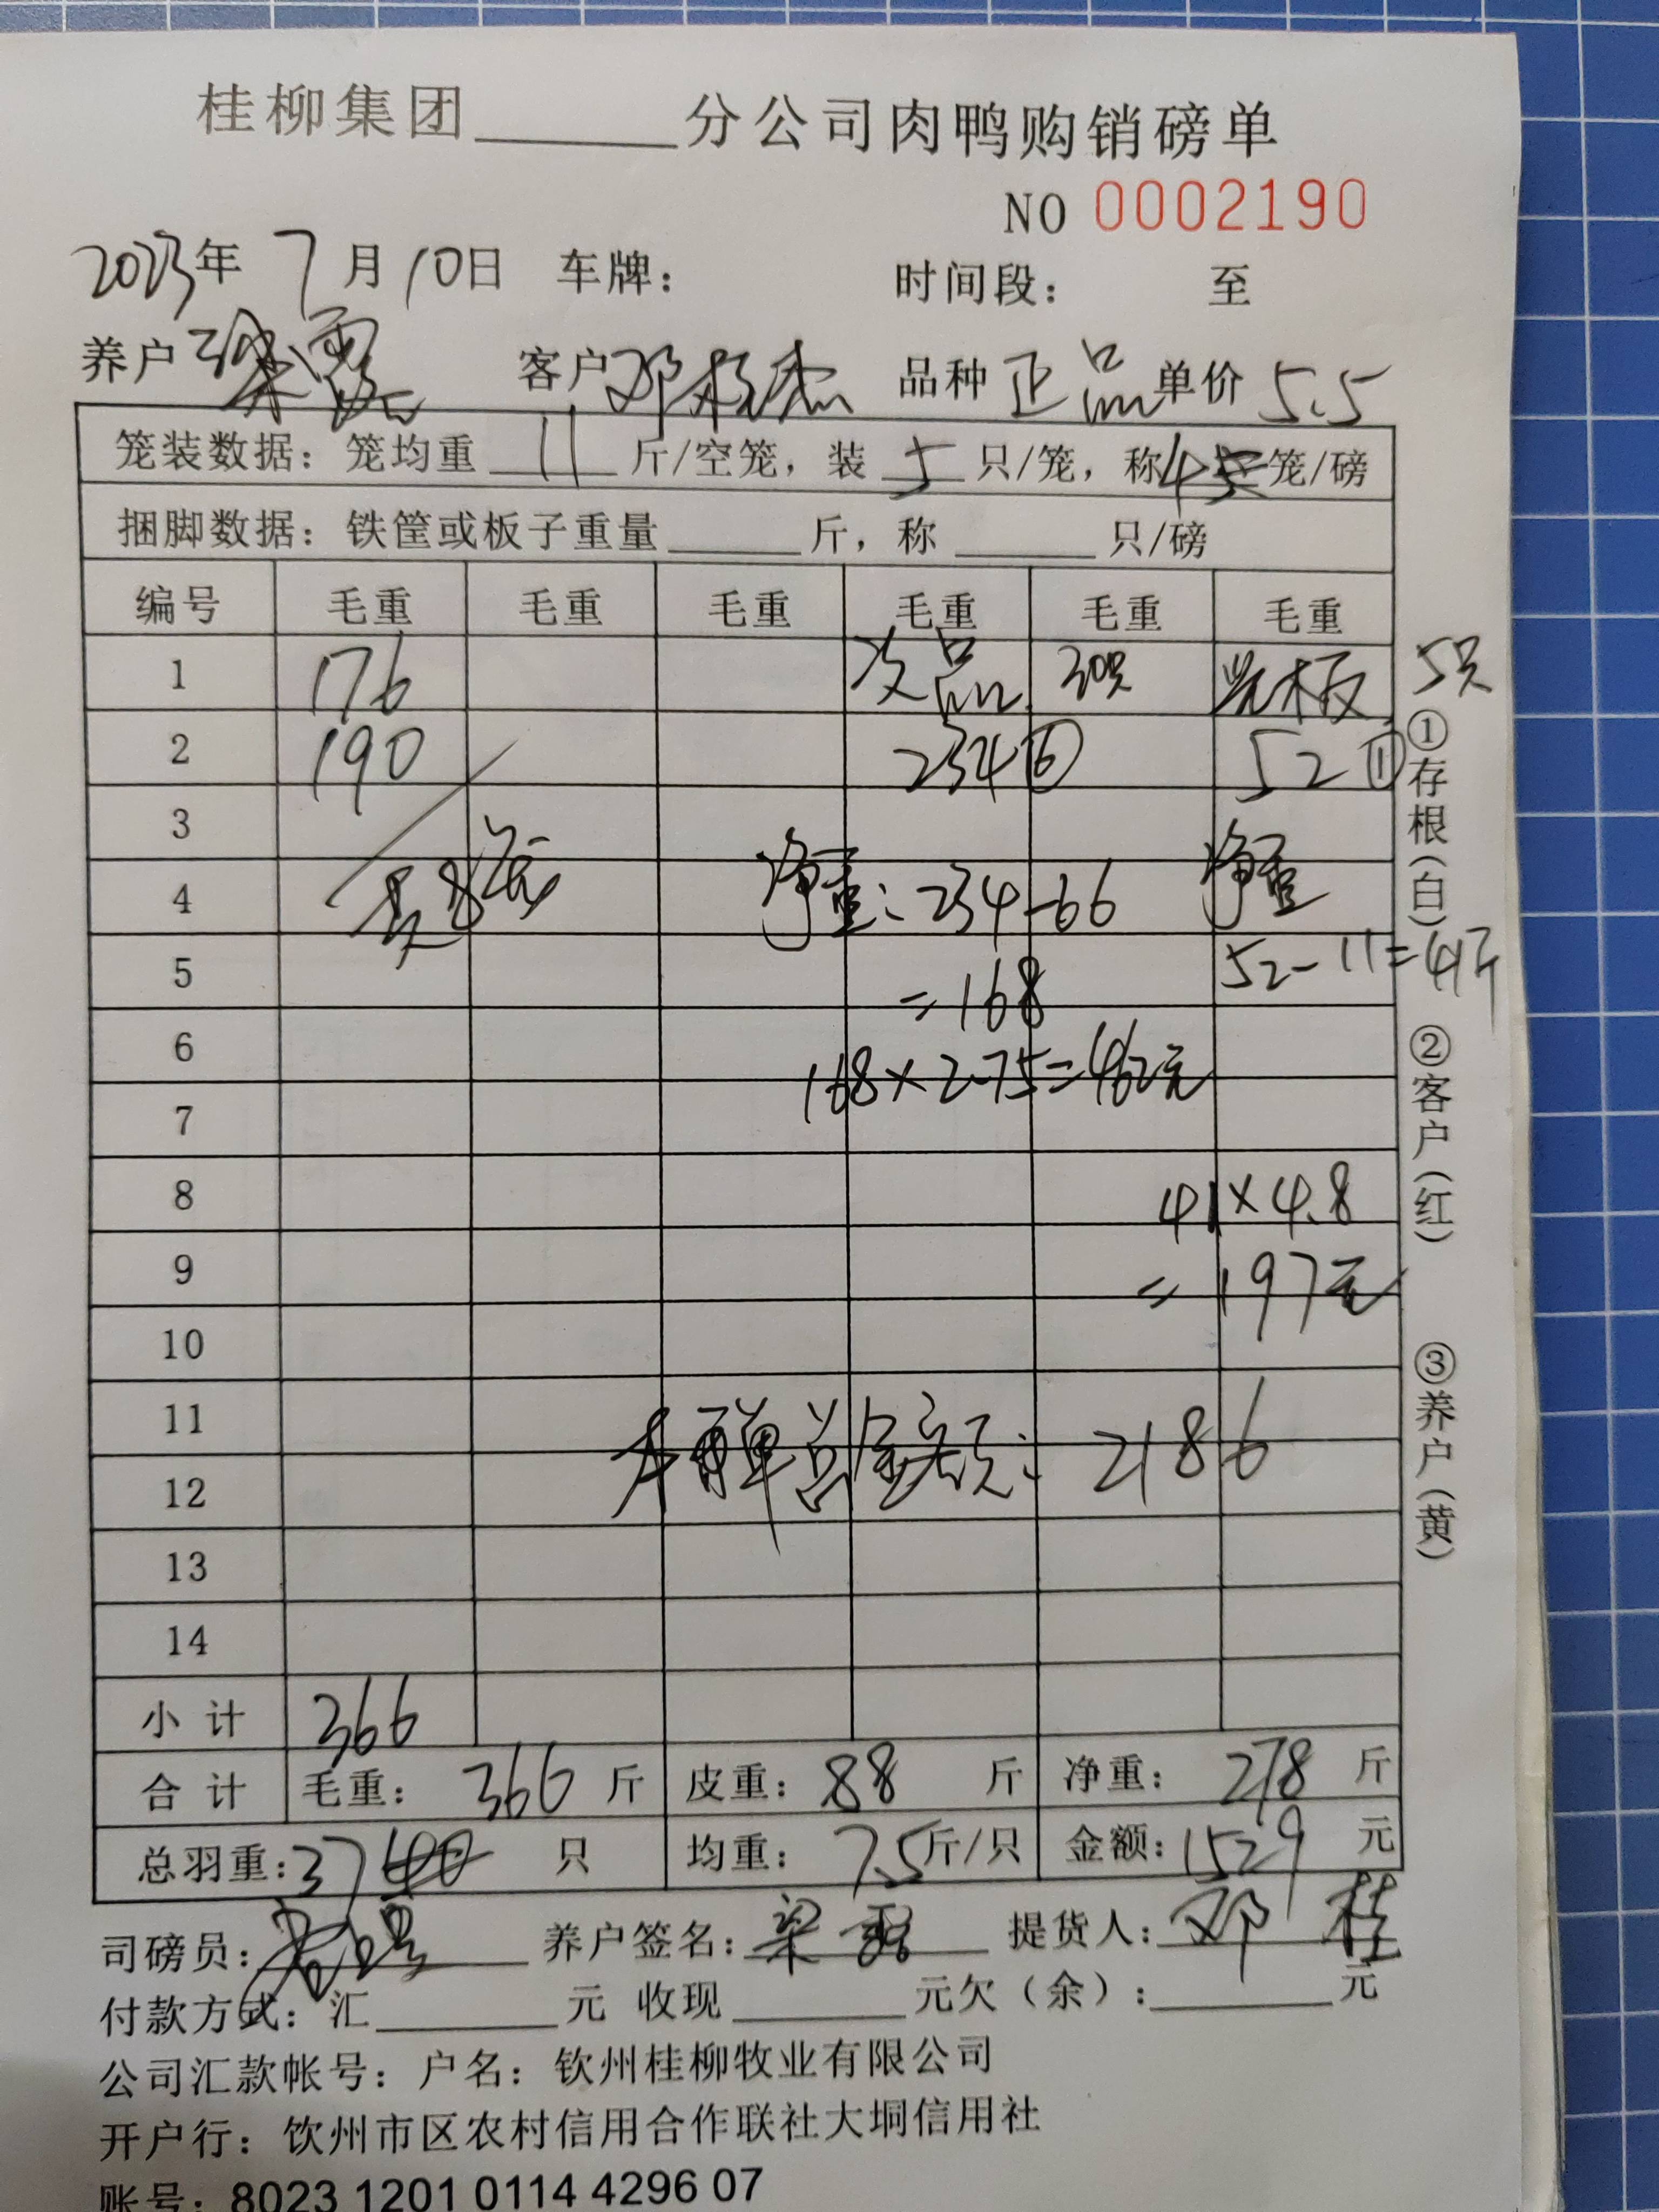 桂柳集团______分公司肉鸭购销磅单
NO 0002190
2023年 7月10日 车牌: 时间段: 至
养户 梁 客户 邓 品种 正品 单价 5.5
笼装数据: 笼均重 11 斤/空笼, 装 5 只/笼, 称 4 笼/磅
捆脚数据: 铁筐或板子重量______斤, 称______只/磅
编号 毛重 毛重 毛重 毛重 毛重 毛重
1 176 次品 30只 光板 5只
2 190 234⑥ 52①
3
4 共8笼 净重: 234-66 净重
5 =168 52-11=41斤
6 168×2.75=462元
7
8 41×4.8
9 =197元
10
11 本单总金额: 2186
12
13
14
小计 366
合计 毛重: 366 斤 皮重: 88 斤 净重: 278 斤
总羽重: 37 只 均重: 7.5斤/只 金额: 1529 元
司磅员: 养户签名: 梁 提货人: 邓 桂
付款方式: 汇______元 收现______元欠(余):______元
公司汇款帐号: 户名: 钦州桂柳牧业有限公司
开户行: 钦州市区农村信用合作联社大垌信用社
账号: 8023 1201 0114 4296 07
①存根(白) ②客户(红) ③养户(黄)